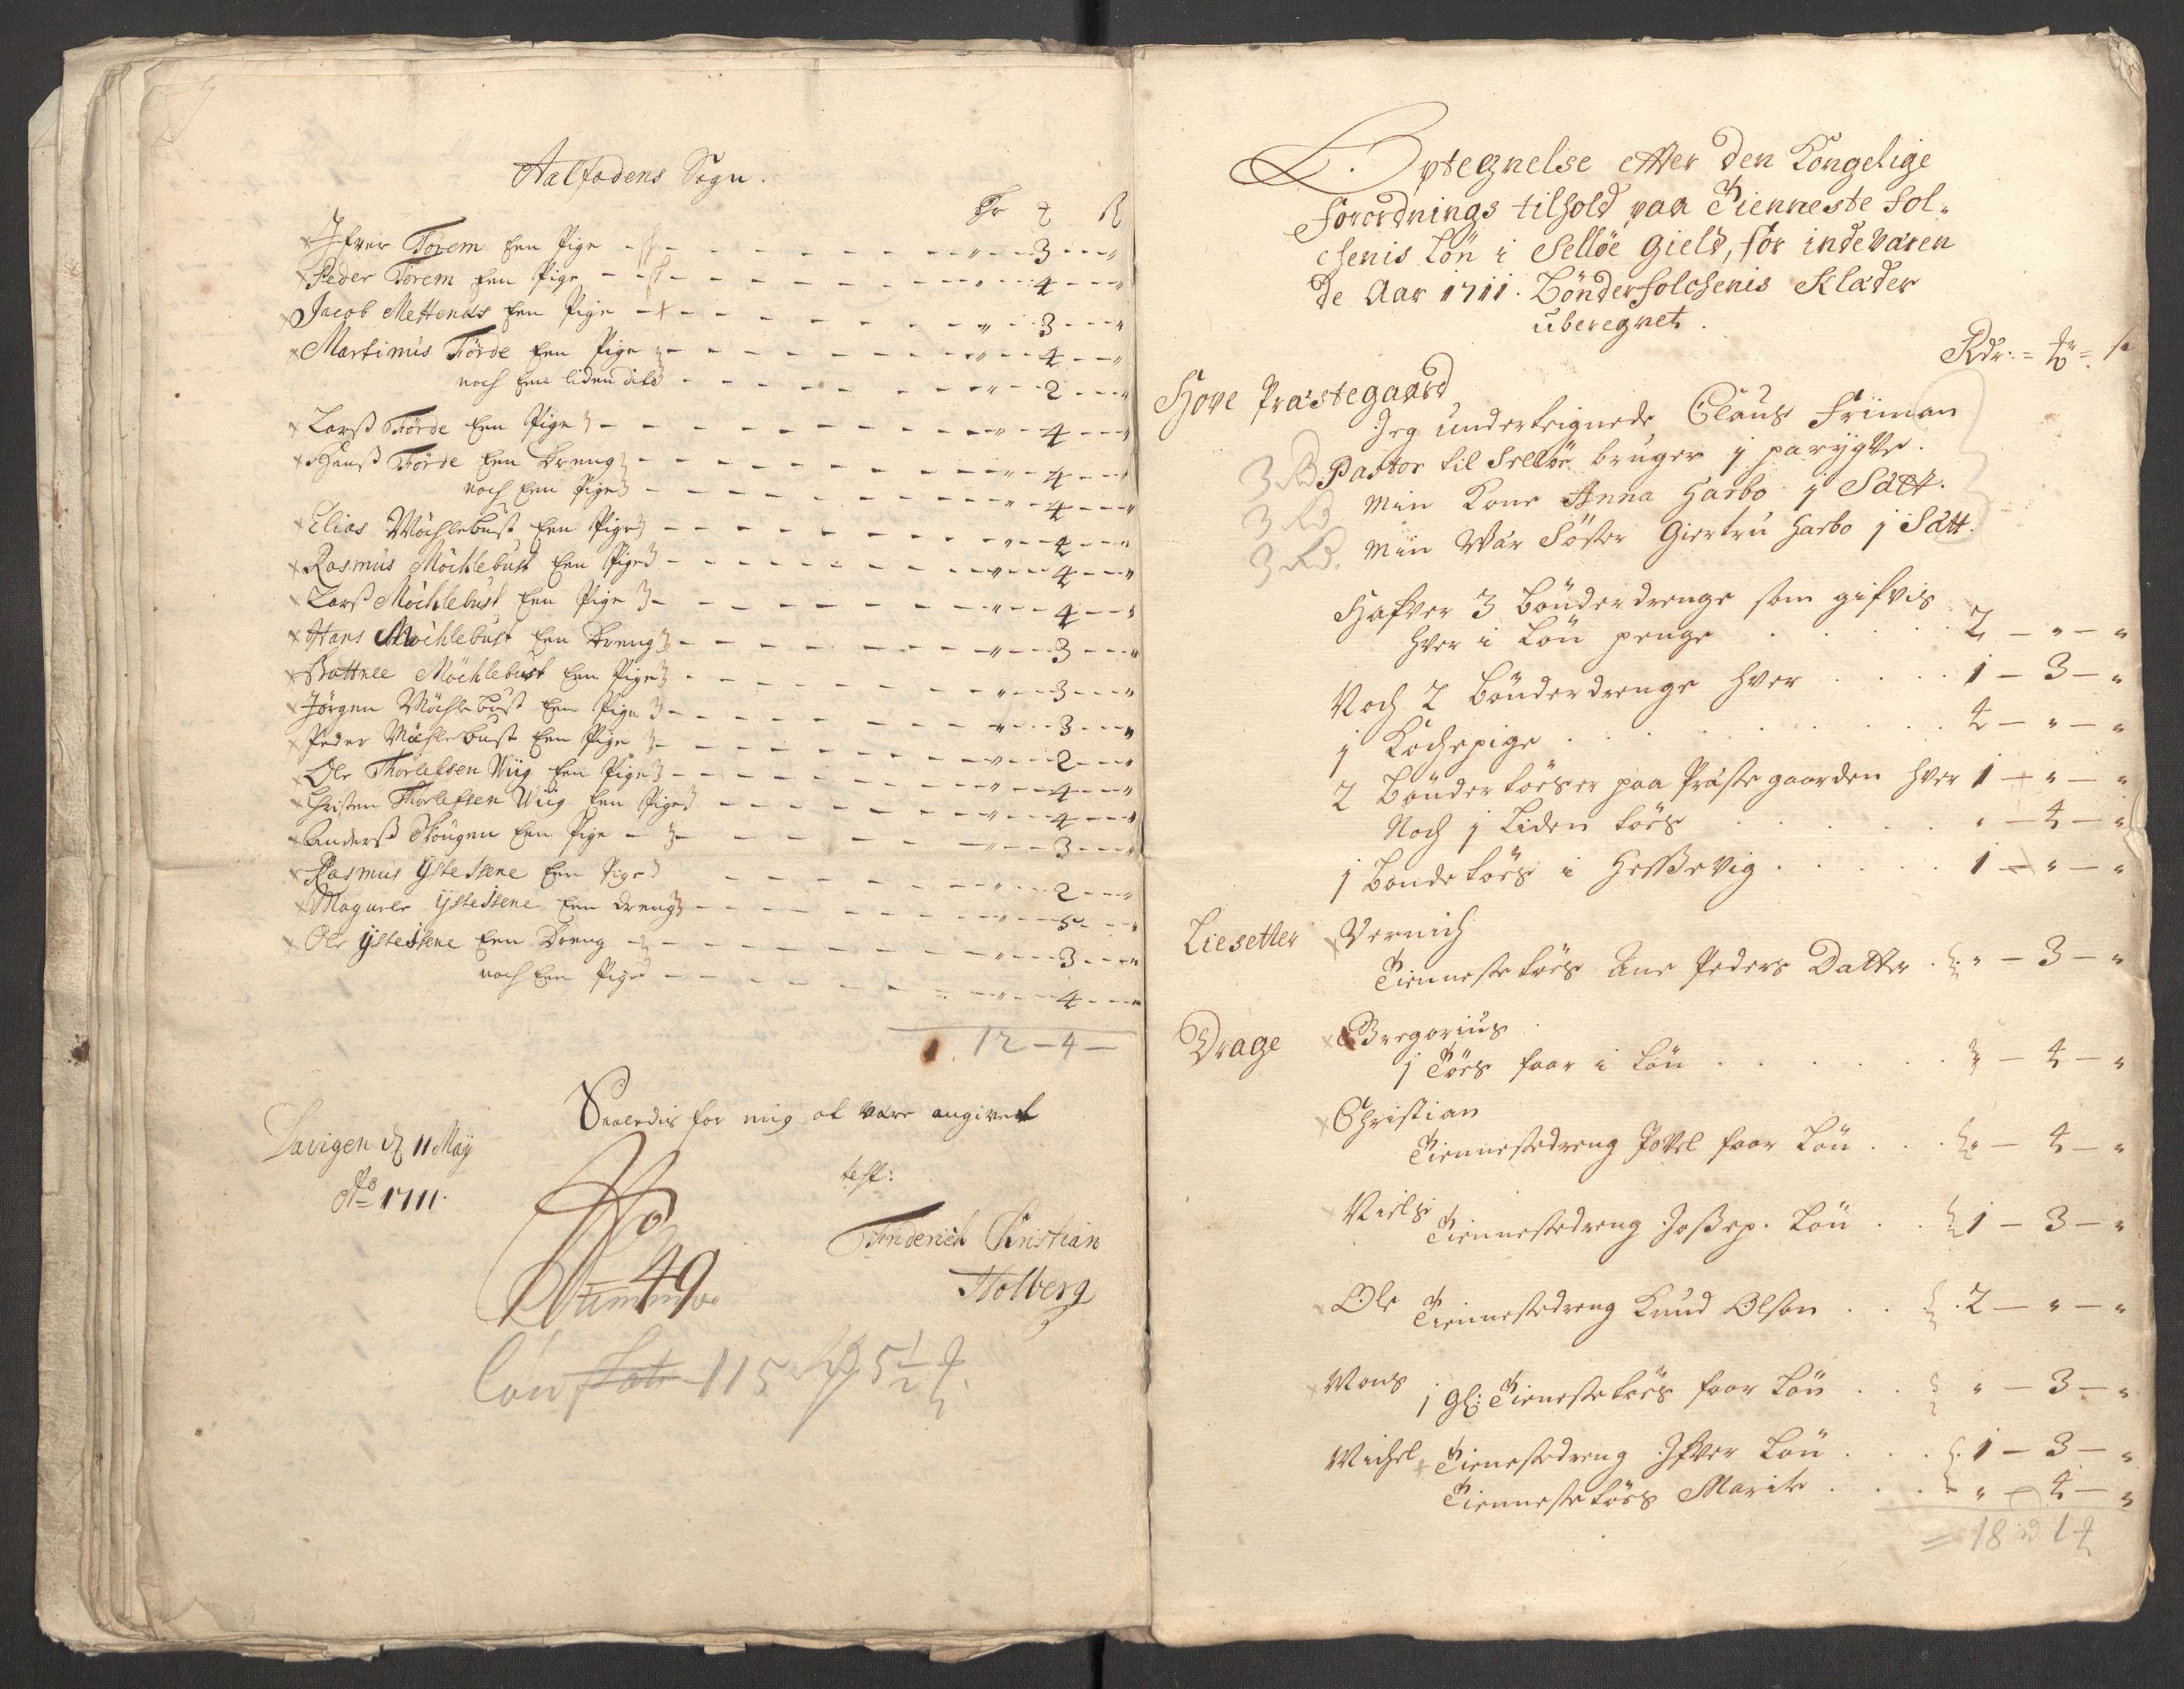 Aalfodens Sogn.
Ifver Torem Een Pige - - - " - 3 - "
Peder Torem Een Pige - - - " - 4 - "
Jacob Mettenæs Een Pige - - - " - 3 - "
Martinus Förde Een Pige - - - " - 4 - "
noch Een liden dito - - - " - 2 - "
Larss Förde Een Pige - - - " - 4 - "
Hanss Förde Een Dreng - - - " - 4 - "
noch Een Pige - - - " - 4 - "
Elias Möchlebust Een Pige - - - " - 4 - "
Rasmus Möchlebust Een Pige - - - " - 4 - "
Larss Möchlebust Een Pige - - - " - 4 - "
Hans Möchlebust Een Dreng - - - " - 3 - "
Möchlebust Een Pige - - - " - 3 - "
Jörgen Möchlebust Een Pige - - - " - 3 - "
Peder Möchlebust Een Pige - - - " - 2 - "
Ole Thorlefsen Wiig Een Pige - - - " - 4 - "
Christen Thorlefsen Wiig Een Pige - - - " - 4 - "
Anderss Skougen Een Pige - - - " - 3 - "
Rasmus Ystestene Een Pige - - - " - 2 - "
Ystestene Een Dreng - - - " - 5 - "
Ole Ystestene Een Dreng - - - " - 3 - "
noch Een Pige - - - " - 4 - "
12 - 4 -
Saaledis for mig at være angivet
Davigen d 11 May
Ao 1711.
test:
Friderich Christian
Holberg
No
49
115 5 1/2
Optegnelse efter den Kongelige
Forordnings tilhold paa Tienneste Fol-
chenis Lön i Selløe Gield, for indeværen
de Aar 1711. Bönderfolchenis Klæder
uberegnet.
Rdr: =
Hove Præstegaard
Jeg underteignede Claus Friman
3 Pastor til Selløe bruger j parygve.
3 Min Kone Anna Harbo j Sætt.
3 Min Vær Söster Giertru Harbo j Sætt.
Hafver 3 bönderdrenge som gifvis
hver i Lön penge . . . 2 - " - "
Noch 2 bönderdrenge hver . . . 1 - 3 - "
j Kochepige . . . 4 - " - "
2 bönder töeser paa Præstegaarden hver 1 - " - "
Noch j Liden töes . . . " - 4 - "
j bonde töes i Hessevig . . . 1 - " - "
Liesetter Vernich
Tienneste töes Ane Peders Datter . " - 3 - "
Drage Gregorius
j Töes faar i Lön . . . 3 - 4 - "
Christian
Tiennestedreng Povel faar Lön . . . " - 4 - "
Niels
Tiennestedreng Jossep. Lön . . 1 - 3 - "
Ole Tiennestedreng Knud Olsön . . 2 - " - "
Mons j gl: Tieneste töes faar Lön . . " - 3 - "
Michel Tienestedreng Ifver Lön . . 1 - 3 - "
Tienneste töes Marite . . . " - 4 - "
= 18 1